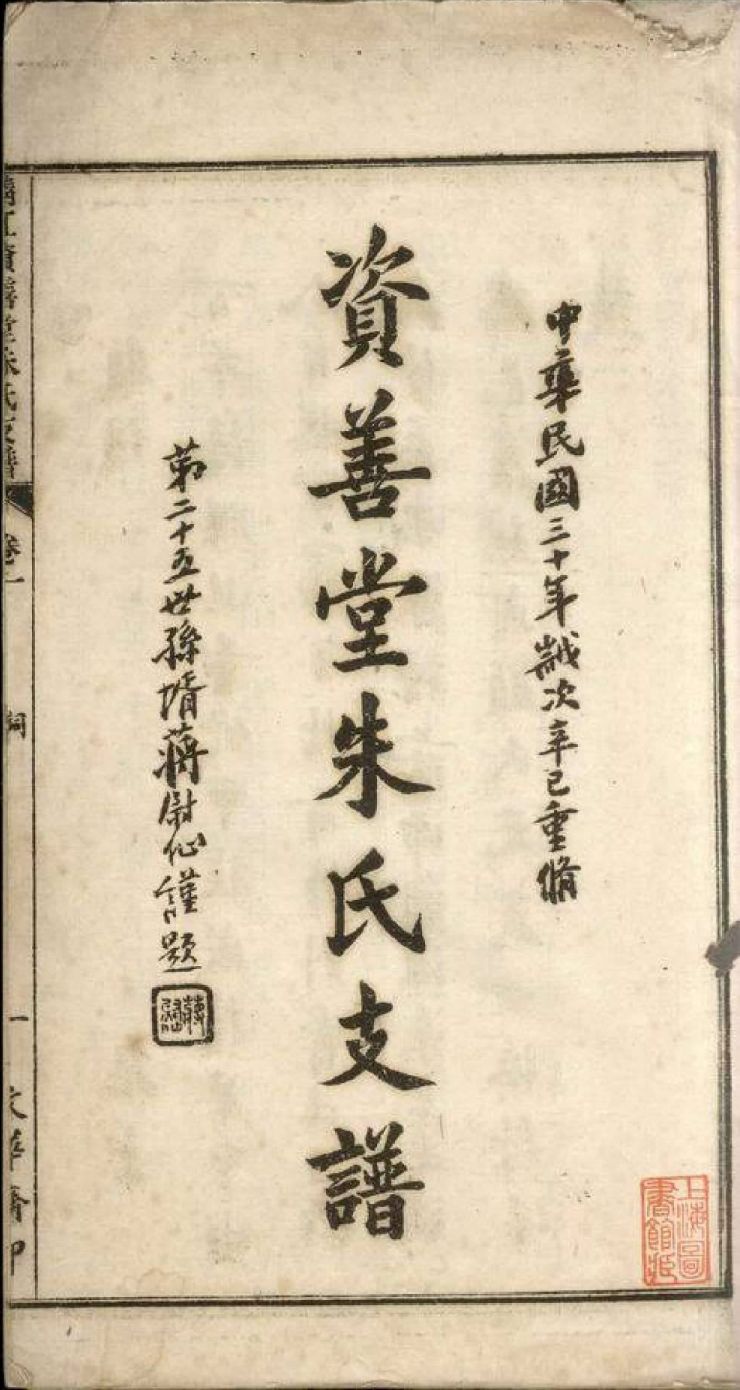 中華民國三十年歲次辛巳重脩
資善堂朱氏支譜
第二十五世孫壻蔣尉仙謹題
上海圖
書館藏
資善堂朱氏支譜
卷一
一
文華齋印